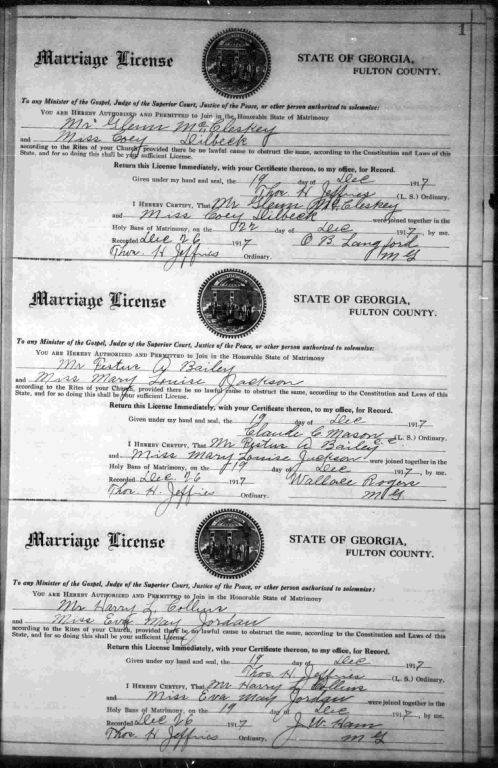 1
Marriage License
STATE OF GEORGIA,
FULTON COUNTY.
To any Minister of the Gospel, Judge of the Superior Court, Justice of the Peace, or other person authorized to solemnize:
YOU ARE HEREBY AUTHORIZED AND PERMITTED to Join in the Honorable State of Matrimony
Mr Glenn McCleskey
and Miss Coey Dilbeck
according to the Rites of your Church, provided there be no lawful cause to obstruct the same, according to the Constitution and Laws of this
State, and for so doing this shall be your sufficient License.
Return this License Immediately, with your Certificate thereon, to my office, for Record.
Given under my hand and seal, the 19 day of Dec 1917
Thos. H. Jeffries (L. S.) Ordinary.
I HEREBY CERTIFY, That Mr Glenn McCleskey
and Miss Coey Dilbeck were joined together in the
Holy Bans of Matrimony, on the 22 day of Dec 1917, by me.
Recorded Dec 26 1917 O B Langford
Thos H Jeffries Ordinary. M G
Marriage License
STATE OF GEORGIA,
FULTON COUNTY.
To any Minister of the Gospel, Judge of the Superior Court, Justice of the Peace, or other person authorized to solemnize:
YOU ARE HEREBY AUTHORIZED AND PERMITTED to Join in the Honorable State of Matrimony
Mr A Bailey
and Miss Mary Louise Jackson
according to the Rites of your Church, provided there be no lawful cause to obstruct the same, according to the Constitution and Laws of this
State, and for so doing this shall be your sufficient License.
Return this License Immediately, with your Certificate thereon, to my office, for Record.
Given under my hand and seal, the 19 day of Dec 1917
Claude C. Mason (L. S.) Ordinary.
I HEREBY CERTIFY, That Mr A Bailey
and Miss Mary Louise Jackson were joined together in the
Holy Bans of Matrimony, on the 19 day of Dec 1917, by me.
Recorded Dec 26 1917 Wallace Rogers
Thos. H. Jeffries Ordinary. M G
Marriage License
STATE OF GEORGIA,
FULTON COUNTY.
To any Minister of the Gospel, Judge of the Superior Court, Justice of the Peace, or other person authorized to solemnize:
YOU ARE HEREBY AUTHORIZED AND PERMITTED to Join in the Honorable State of Matrimony
Mr Harry L. Collins
and Miss Eva May Jordan
according to the Rites of your Church, provided there be no lawful cause to obstruct the same, according to the Constitution and Laws of this
State, and for so doing this shall be your sufficient License.
Return this License Immediately, with your Certificate thereon, to my office, for Record.
Given under my hand and seal, the 19 day of Dec 1917
Thos. H. Jeffries (L. S.) Ordinary.
I HEREBY CERTIFY, That Mr Harry L. Collins
and Miss Eva May Jordan were joined together in the
Holy Bans of Matrimony, on the 19 day of Dec 1917, by me.
Recorded Dec 26 1917 J. W. Ham
Thos. H. Jeffries Ordinary. M G